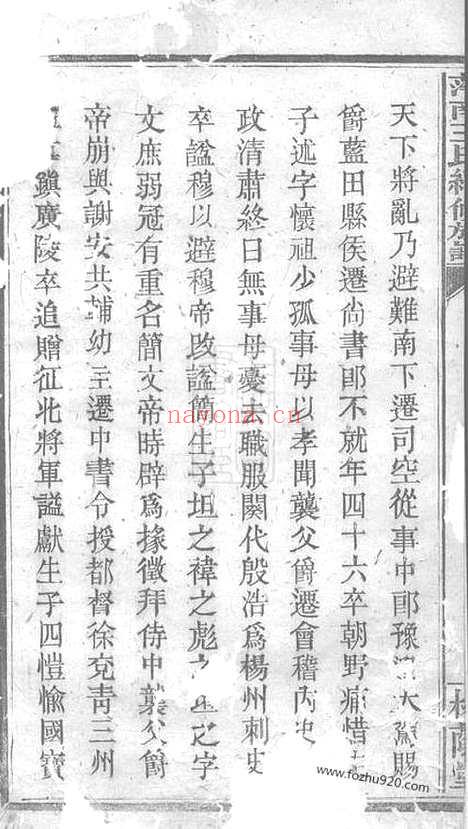 天下將亂乃避難南下遷司空從事中郎豫賜
爵藍田縣侯遷尚書郎不就年四十六卒朝野痛惜
子述字懷祖少孤事母以孝聞襲父爵遷會稽內史
政清肅終日無事母憂去職服闋代殷浩爲楊州刺史
卒諡穆以避穆帝改諡簡生子坦之禕之彪之字
文庶弱冠有重名簡文帝時辟爲掾徵拜侍中襲父爵
帝崩與謝安共輔幼主遷中書令授都督徐兗靑三州
鎭廣陵卒追贈征北將軍諡獻生子四愷愉國寶
nayona.cn
www.fozhu920.com